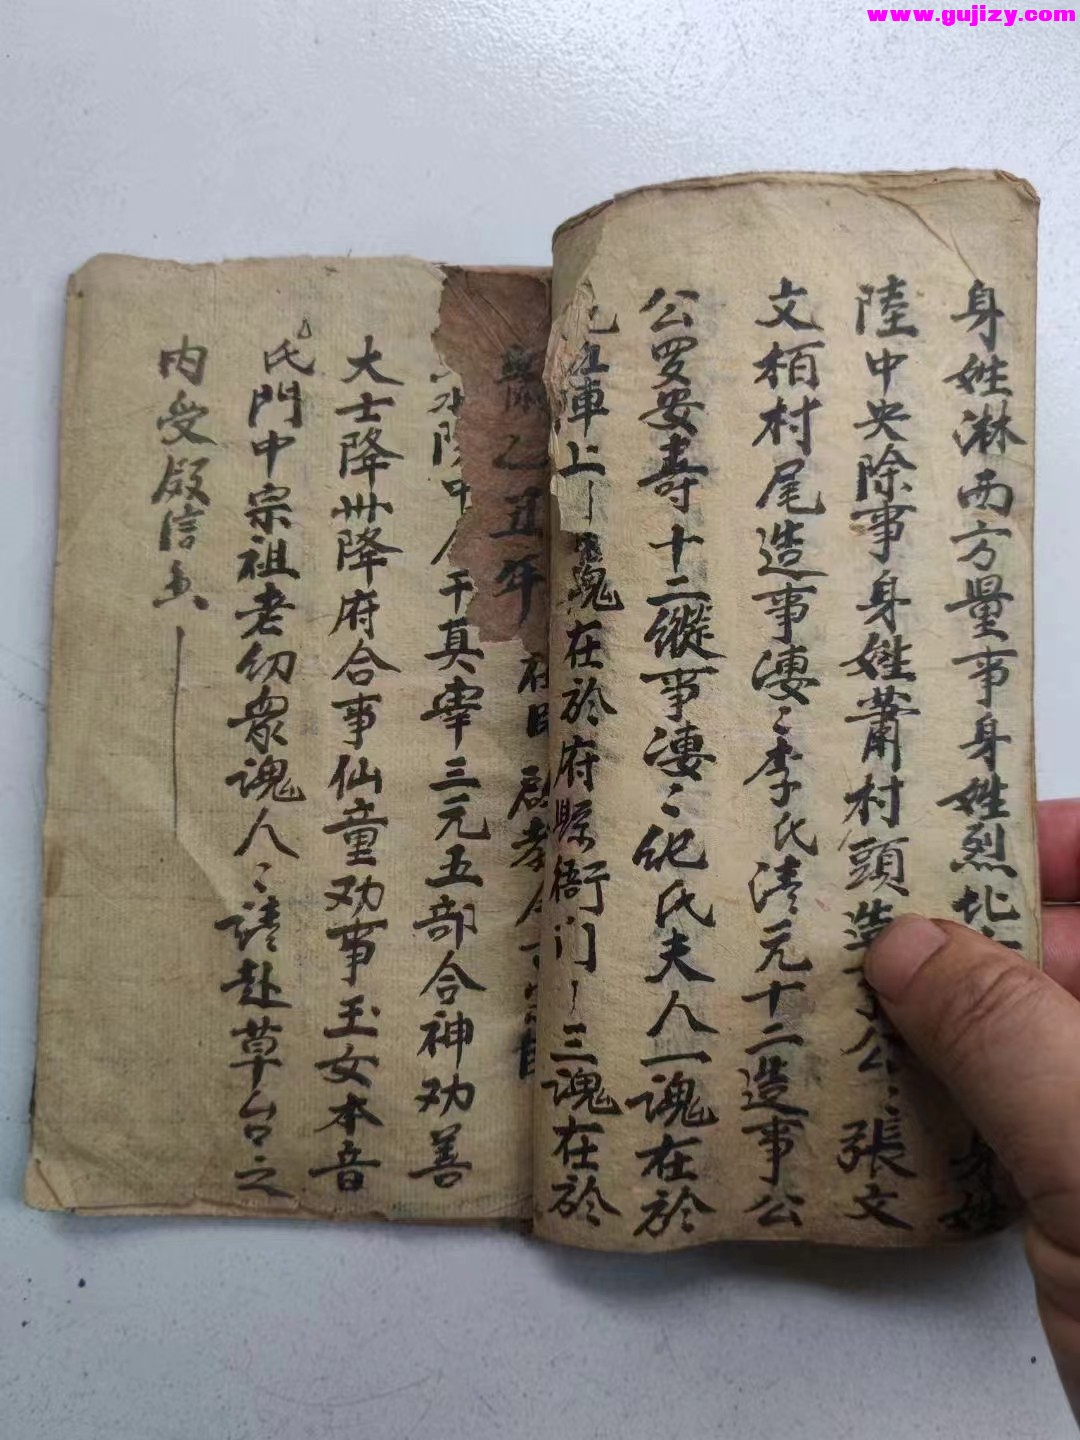 www.gujizy.com
身姓淋西方量事身姓烈北身姓
陸中央除事身姓蕭村頭造公〻張文
文栢村尾造事凄〻李氏清元十二造事公
公罗安壽十二縱事凄〻纪氏夫人一魂在於
車上魂在於府縣衙门三魂在於
乙丑年
水陸中干真宰三元五部合神劝善
大士降州降府合事仙童劝事玉女本音
氏門中宗祖老幼衆魂人〻請赴草台之
内受假信